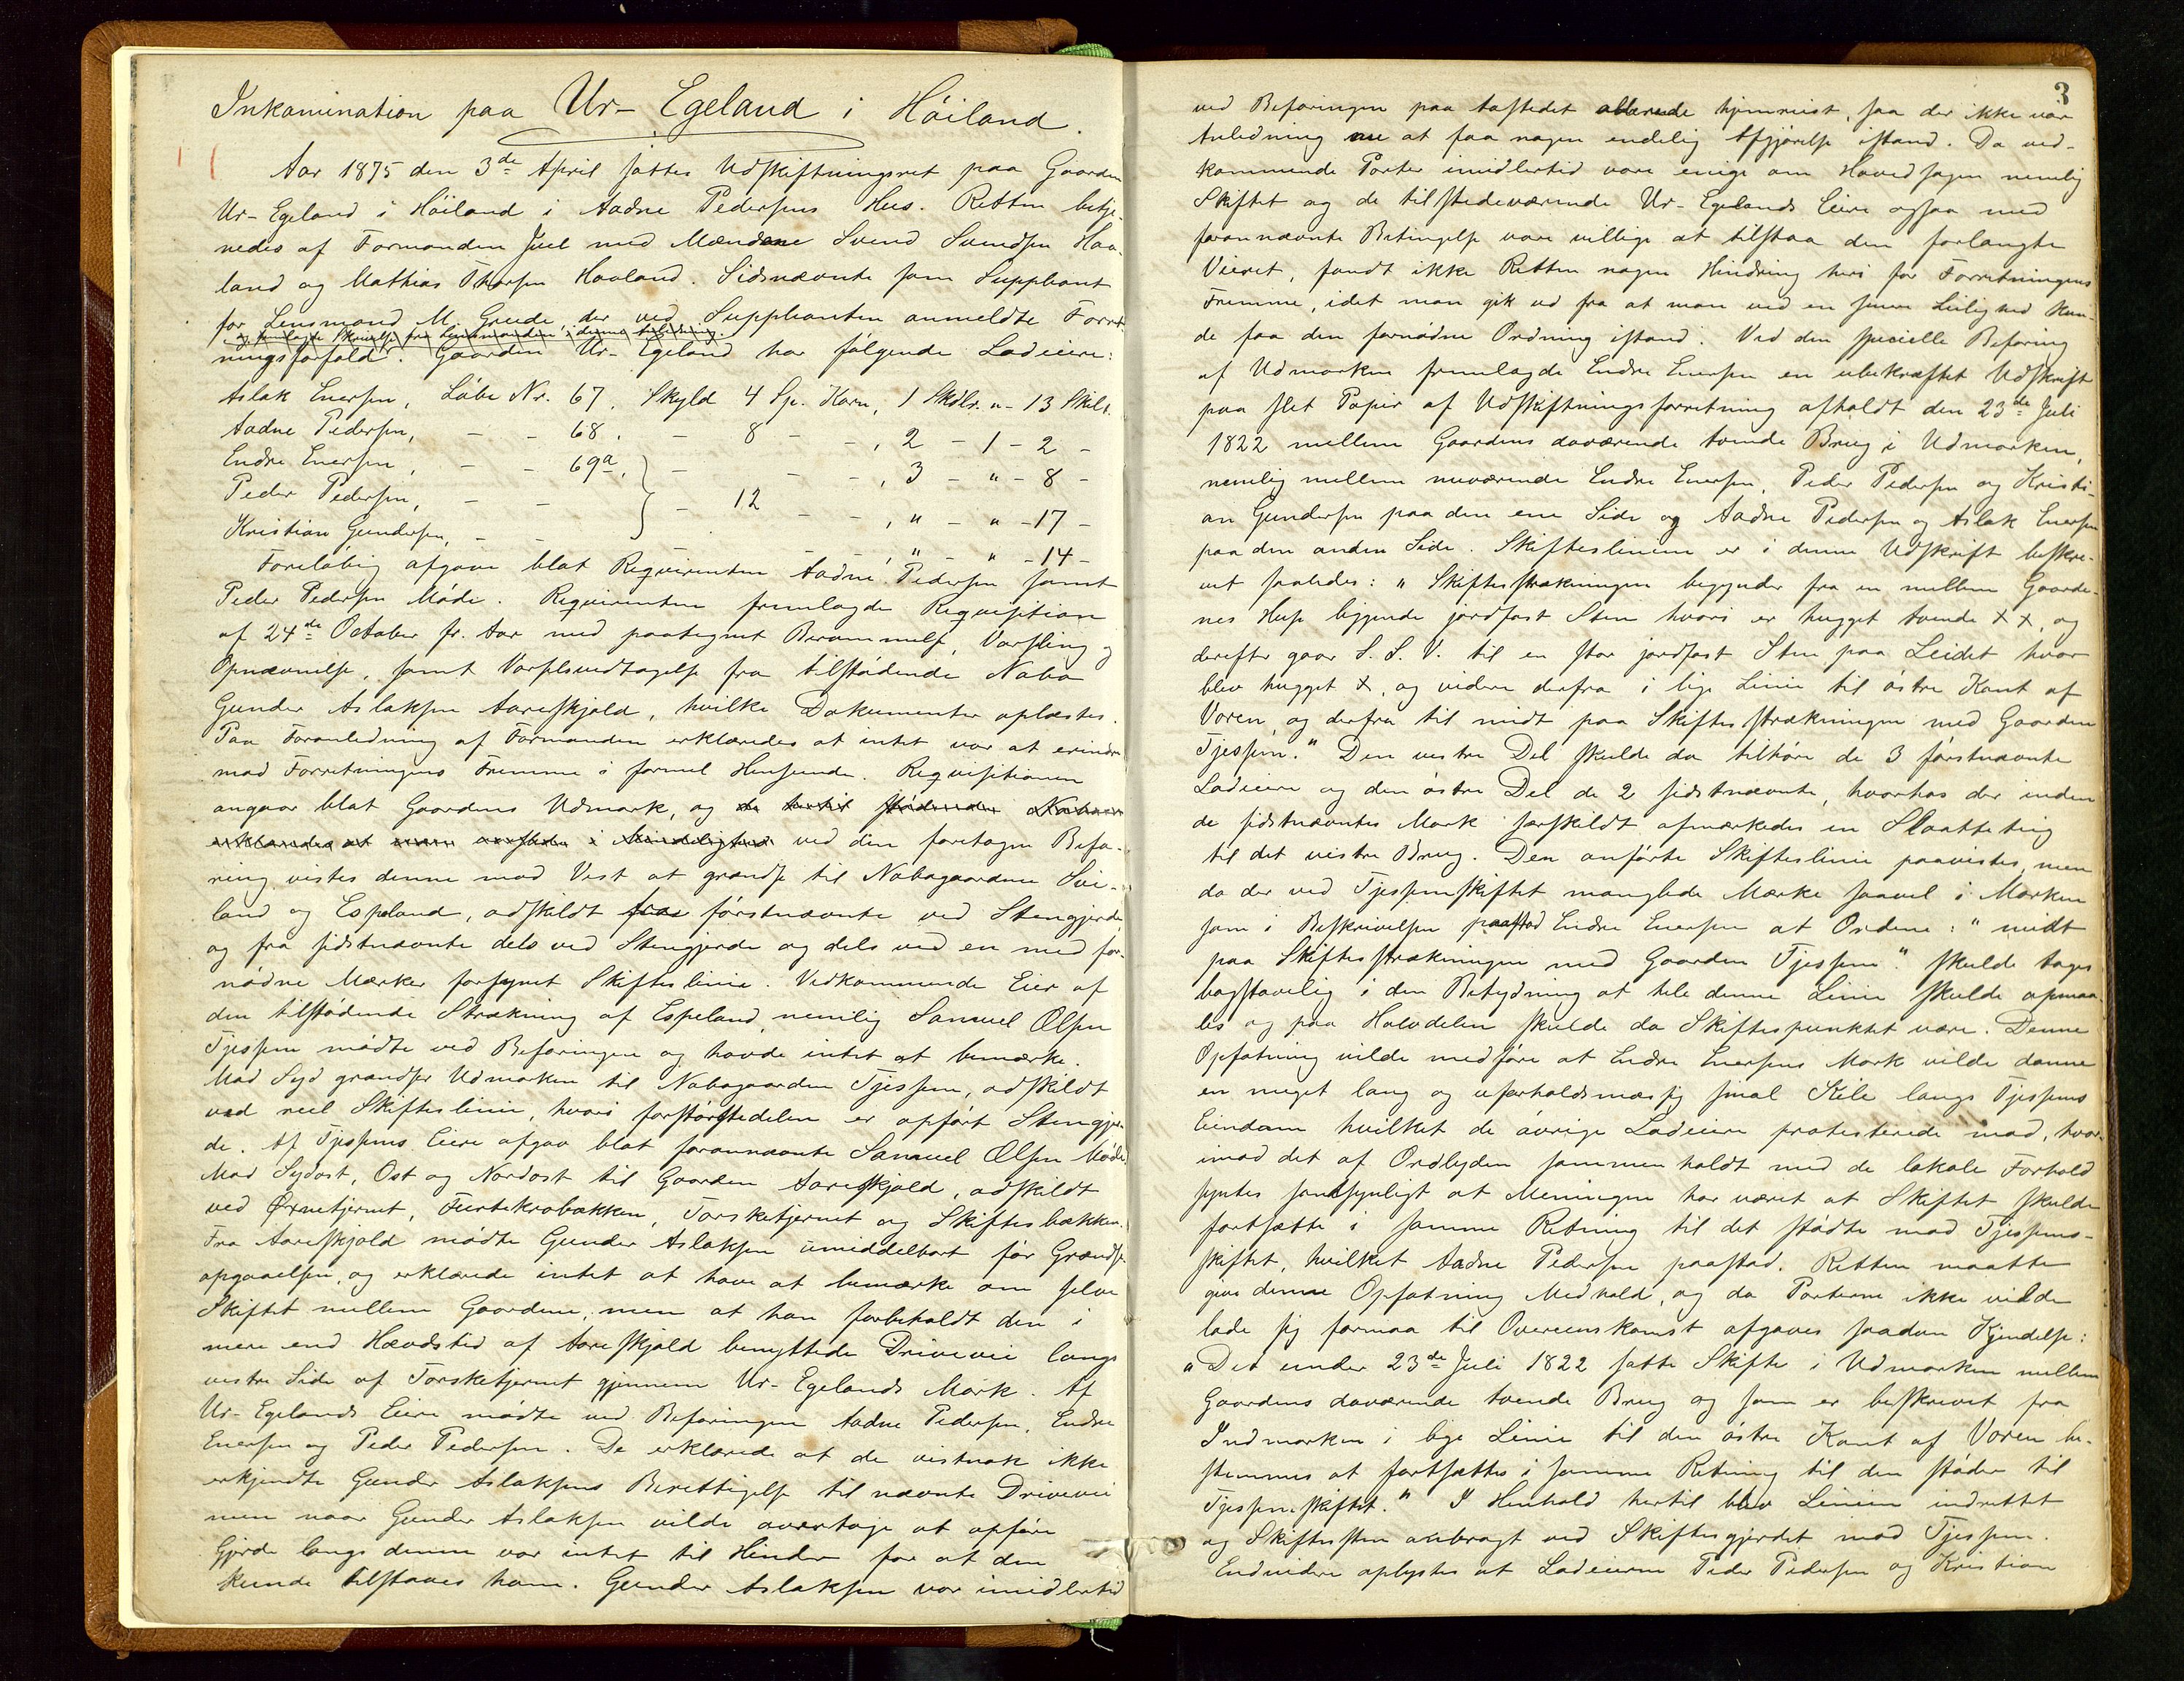 Inkamination paa Ur-Egeland i Höiland.
Aar 1875 den 3de April sattes Udskiftningsret paa Gaarden
Ur-Egeland i Höiland i Aadne Pedersens Hus. Retten betje-
nedes af Formanden Juel med Mændene Svend Svendsen Haa-
land og Mathias Thorsen Haaland. Sidsnævnte som Suppleant
for Lensmand M. Grude, der ved Suppleanten anmeldte Forret-
og fremlagde Skrivelse fra Lensmanden i denne
ningsforfald. Gaarden Ur-Egeland har fölgende Lodeiere:
Aslak Enersen, Löbe Nr. 67, Skyld 4 Sp. Korn, 1 Skdlr. " - 13 Skill.
Aadne Pedersen, - - 68. - 8 - - , 2 - 1 - 2 -
Endre Enersen, - - 69a, - - - , 3 - " - 8 -
Peder Pedersen, - - } - 12 - - , " - " - 17 -
Kristian Gundersen, - - , " - " - 14 -
Foreløbig afgave blot Requirenten Aadne Pedersen samt
Peder Pedersen Möde. Requirenten fremlagde Requisition
af 24de October fr. Aar med paategnet Berammelse, Varsling og
Opnævnelse, samt Varselsvedtagelse fra tilstødende Nabo
Gunder Aslaksen Aareskjold, hvilke Dokumenter oplæstes.
Paa Foranledning af Formanden erklæredes at intet var at erindre
mod Forretningens Fremme i formel Henseende. Requisitionen
angaar blot Gaardens Udmark, og de hertil stödende Naboer
erklæredes at være i Mindelighed ved den foretagne Befa-
ring vistes denne mod Vest at grændse til Nabogaardene Svi-
land og Espeland, adskildt fra förstnævnte ved Stengjerde
og fra sidstnævnte dels ved Stengjerde og dels ved en med for-
nödne Mærker forsynet Skifteslinie. Vedkommende Eier af
den tilstödende Strækning af Espeland, nemlig Samuel Olsen
Tjessem mödte ved Befaringen og havde intet at bemærke.
Mod Syd grændser Udmarken til Nabogaarden Tjessem, adskildt
ved reel Skifteslinie, hvori forstörstedelen er opfört Stengjer-
de. Af Tjessems Eiere afgav blot forannævnte Samuel Olsen Möde.
Mod Sydost, Ost og Nordost til Gaarden Aareskjold, adskildt
ved Ørnetjernet, Furtekrobakken, Torsketjernet og Skiftesbækken.
Fra Aareskjold mödte Gunder Aslaksen umiddelbart för Grændse-
opgaaelsen, og erklærede intet at have at bemærke om selve
Skiftet mellem Gaardene, men at han forbeholdt den i
mere end Hævdstid af Aareskjold benyttede Drivevei langs
vestre Side af Torsketjernet gjennem Ur-Egelands Mark. Af
Ur-Egelands Eiere mödte ved Befaringen Aadne Pedersen, Endre
Enersen og Peder Pedersen. De erklærede at de vistnok ikke
erkjendte Gunder Aslaksens Berettigelse til nævnte Drivevei
men naar Gunder Aslaksen vilde overtage at opföre
Gjerde langs denne var intet til Hinder for at den
kunde tilstaaes ham. Gunder Aslaksen var imidlertid
3
ved Befaringen paa Aastedet allerede hjemreist, saa der ikke var
Anledning nu at faa nogen endelig Afgjörelse istand. Da ved-
kommende Parter imidlertid vare enige om Hovedsagen nemlig
Skiftet og de tilstedeværende Ur-Egelands Eiere ogsaa med
forannævnte Betingelse vare villige at tilstaa den forlangte
Veiret, fandt ikke Retten nogen Hindring heri for Forretningens
Fremme, idet man gik ud fra at man ved en senere Leilighed kun-
de faa den fornödne Ordning istand. Ved den specielle Befaring
af Udmarken fremlagde Endre Enersen en ubekræftet Udskrift
paa slet Papir af Udskiftningsforretning afholdt den 23de Juli
1822 mellem Gaardens daværende tvende Brug i Udmarken,
nemlig mellem nuværende Endre Enersen, Peder Pedersen og Kristi-
an Gundersen paa den ene Side og Aadne Pedersen og Aslak Enersen
paa den anden Side. Skifteslinien er i denne Udskrift beskre-
vet saaledes: "Skiftesstrækningen begynder fra en mellem Gaarde-
nes Huse liggende jordfast Sten hvori er hugget tvende x x, og
derefter gaar S. S. V. til en stor jordfast Sten paa Leidet hvor
blev hugget x, og videre derfra i lige Linie til östre Kant af
Voren, og derfra til midt paa Skiftesstrækningen med Gaarden
Tjessem." Den vestre Del skulde da tilhöre de 3 förstnævnte
Lodeiere og den östre Del de 2 sidstnævnte, hvorhos der inden
de sidstnævntes Mark særskildt afmærkedes en Slaatteteig
til det vestre Brug. Den anförte Skifteslinie paavistes, men
da der ved Tjessemskiftet manglede Mærke saavel i Marken
som i Beskrivelsen paastod Endre Enersen at Ordene: "midt
paa Skiftesstrækningen med Gaarden Tjessem" skulde tages
bogstavelig i den Betydning at hele denne Linie skulde opmaa-
les og paa Halvdelen skulde da Skiftespunktet være. Denne
Opfatning vilde medföre at Endre Enersens Mark vilde danne
en meget lang og uforholdsmæssig smal Kile langs Tjessems
Eiendom hvilket de övrige Lodeiere protesterede mod, hvor-
imod det af Ordlyden sammenholdt med de lokale Forhold
syntes sandsynligt at Meningen har været at Skiftet skulde
fortsætte i samme Retning til det stödte mod Tjessems-
skiftet, hvilket Aadne Pedersen paastod. Retten maatte
give denne Opfatning Medhold, og da Parterne ikke vilde
lade sig formaa til Overenskomst afgaves saadan Kjendelse:
"Det under 23de Juli 1822 satte Skifte i Udmarken mellem
Gaardens daværende tvende Brug og som er beskrevet fra
Indmarken i lige Linie til den östre Kant af Voren be-
stemmes at fortsættes i samme Retning til den stöder til
Tjessemskiftet." I Henhold hertil blev Linien indrettet
og Skiftessten anbragt ved Skiftesgjerdet mod Tjessem.
Endvidere oplystes at Lodeierne Peder Pedersen og Kristian